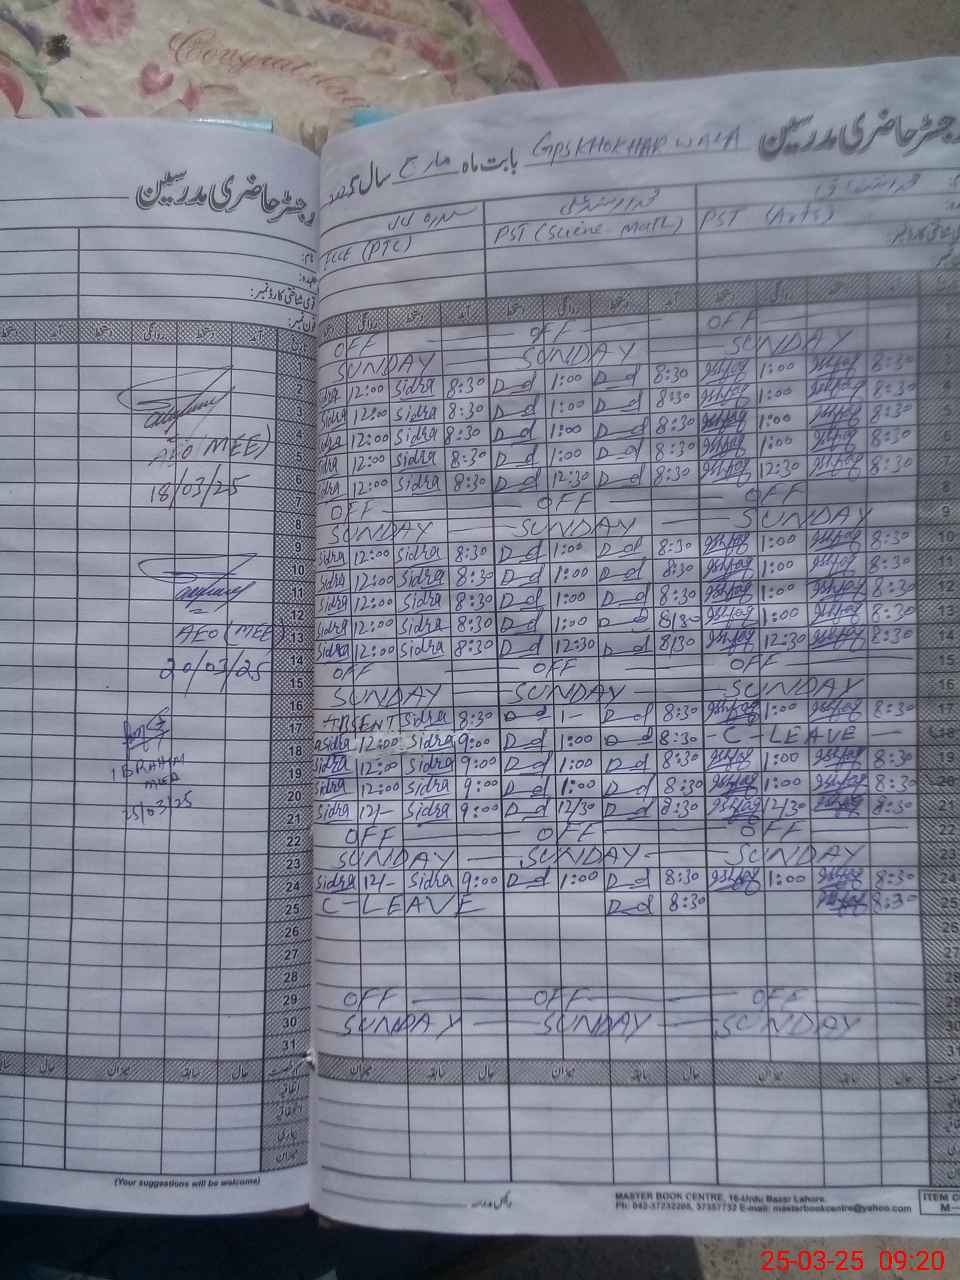 Congratulations
رجسٹر حاضری مدرسین
نام:
عہدہ:
قومی شناختی کارڈ نمبر:
فون نمبر:
AEO (MEE)
18/03/25
AEO (MEE)
20/03/25
IBRAHIM
MEA
25/03/25
(Your suggestions will be welcome)
رجسٹر حاضری مدرسین GPS KHOKHAR WALA بابت ماہ مارچ سال 2025
PST (Arts) PST (Science Math) ECCE (PTC)
آمد دستخط روانگی دستخط آمد دستخط روانگی دستخط آمد دستخط روانگی
1 OFF OFF OFF
2 SUNDAY SUNDAY SUNDAY
3 Sidra 12:00 Sidra 8:30 1:00 8:30 1:00 8:30
4 Sidra 12:00 Sidra 8:30 1:00 8:30 1:00 8:30
5 Sidra 12:00 Sidra 8:30 1:00 8:30 1:00 8:30
6 Sidra 12:00 Sidra 8:30 1:00 8:30 1:00 8:30
7 Sidra 12:00 Sidra 8:30 12:30 8:30 12:30 8:30
8 OFF OFF OFF
9 SUNDAY SUNDAY SUNDAY
10 Sidra 12:00 Sidra 8:30 1:00 8:30 1:00 8:30
11 Sidra 12:00 Sidra 8:30 1:00 8:30 1:00 8:30
12 Sidra 12:00 Sidra 8:30 1:00 8:30 1:00 8:30
13 Sidra 12:00 Sidra 8:30 1:00 8/30 1:00 8:30
14 Sidra 12:00 Sidra 8:30 12:30 8/30 12:30 8:30
15 OFF OFF OFF
16 SUNDAY SUNDAY SUNDAY
17 ABSENT Sidra 8:30 1- 8:30 1:00 8:30
18 Sidra 12:00 Sidra 9:00 1:00 8:30 -C-LEAVE
19 Sidra 12:00 Sidra 9:00 1:00 8:30 1:00 8:30
20 Sidra 12:00 Sidra 9:00 1:00 8:30 1:00 8:30
21 Sidra 12/- Sidra 9:00 12/30 8:30 12/30 8:30
22 OFF OFF OFF
23 SUNDAY SUNDAY SUNDAY
24 Sidra 12/- Sidra 9:00 1:00 8:30 1:00 8:30
25 C-LEAVE 8:30 8:30
26
27
28
29 OFF OFF OFF
30 SUNDAY SUNDAY SUNDAY
31
حال سابقہ میزان حال سابقہ میزان حال سابقہ میزان
MASTER BOOK CENTRE, 16-Urdu Bazar Lahore.
Ph: 042-37232205, 37357732 E-mail: masterbookcentre@yahoo.com
ITEM C
M-
25-03-25 09:20